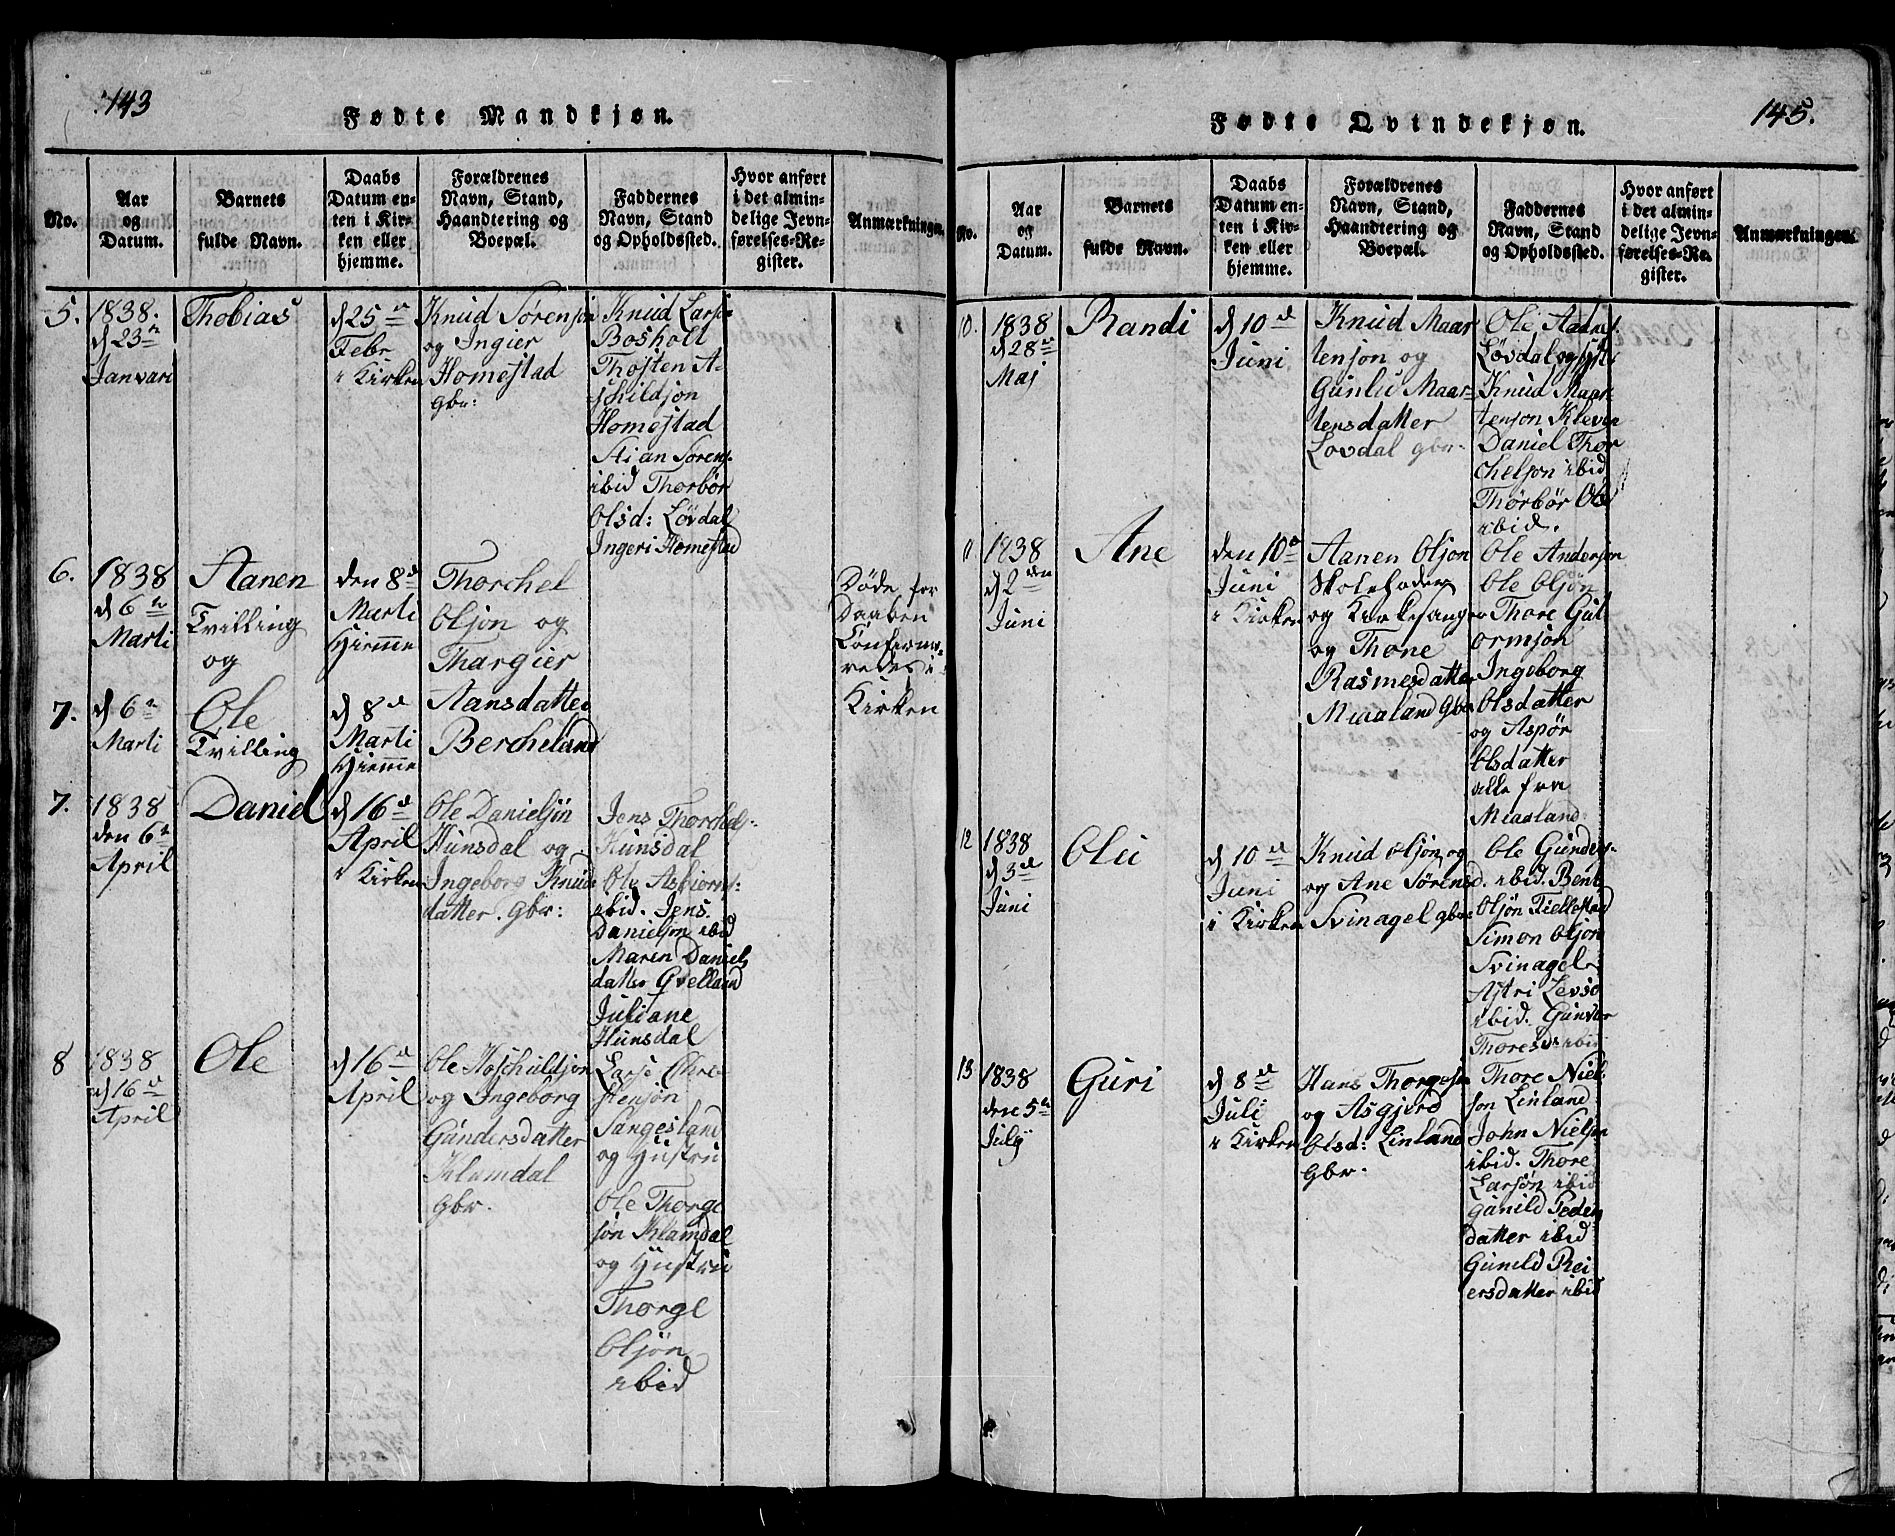 143
Fødte Mandkjøn.
No.
Aar
og
Datum.
Barnets
fulde Navn.
Daabs
Datum en-
ten i Kir-
ken eller
hjemme.
Forældrenes
Navn, Stand,
Haandtering og
Boepæl.
Faddernes
Navn, Stand
og Opholdssted.
Hvor anført
i det almin-
delige Jevn-
førelses-Re-
gister.
Anmærkninger.
5.
1838.
d 23n
Januari
Thobias
d 25
Febr
i Kirken
Knud Sørensøn
og Ingier
Homestad
gbr:
Knud Lars-
Bosholt
Thosten A-
schildsøn
Homestad
Stian Sørens.
ibid Thorbør
Olsd: Løvdal
Ingeri Homestad
6.
1838
d 6te
Marti
Aanen
Tvilling
og
den 8d
Marti
Hjemme
Thorchel
Olsøn og
Thargier
Aansdatter
Bercheland
Døde før
Daaben
Confirme-
redes i
Kirken
7.
d 6te
Marti
Ole
Tvilling
d 8d
Marti
Hjemme
7.
1838
den 6te
April
Daniel
d 16d
April
i Kirken
Ole Danielsøn
Hunsdal og
Ingeborg Knud:
datter. gbr:
Jens Thorchels:
Hunsdal
Ole Asbiørns:
ibid. Jens
Danielsøn ibid
Maren Daniels
datter Qvelland
Juliane
Hunsdal
8
1838
d 16d
April
Ole
d 16d
April
Ole Hoschuldsøn
og Ingeborg
Gundersdatter
Klamdal
gbr.
Lars Chri-
stensøn
Sangesland
og Hustru
Ole Thorge
søn Klamdal
og Hustru
Thorge
Olsøn
ibid
145.
Fødte Qvindekjøn.
No.
Aar
og
Datum.
Barnets
fulde Navn.
Daabs
Datum en-
ten i Kir-
ken eller
hjemme.
Forældrenes
Navn, Stand,
Haandtering og
Boepæl.
Faddernes
Navn, Stand
og Opholdssted.
Hvor anført
i det almin-
delige Jevn-
førelses-Re-
gister.
Anmærkninger.
10.
1838
d 28de
Maj
Randi
d 10d
Juni
Knud Maar
tensøn og
Gunlu Maar-
tensdatter
Lovdal gbr.
Ole Aadns.
Løvdal og Hstr
Knud Maar
tensøn Kleven
Daniel Thor
chelsøn ibid
Thorbør Ols
ibid.
11
1838
d 2den
Juni
Ane
den 10d
Juni
i Kirken
Aanen Olsøn
Skoleholder
og Kirkesanger
og Thone
Rasmesdatter
Miaaland gbr
Ole Andersøn
Ole Olsøn
Thore Gut
ormsøn
Ingeborg
Olsdatter
og Aspør
Olsdatter
alle fra
Miaaland
12
1838
d 3d
Juni
Olu
d 10d
Juni
i Kirken
Knud Olsøn og
og Ane Sørensd.
Svinagel gbr.
Ole Gunders.
ibid. Bent
Olsøn Tiellestad
Simon Olsøn
Svinagel
Astri Levsd
ibid. Gunvor
Thoresd: ibid
13
1838
den 5te
July
Guri
d 8d
Juli
i Kirken
Hans Thorgesøn
og Asgjerd
Olsd: Linland
gbr.
Thore Niel-
søn Linland
John Nielsøn
ibid. Thore
Larsøn ibid
Gunild Peders
datter ibid
Gunild Rei
ersdatter ibid